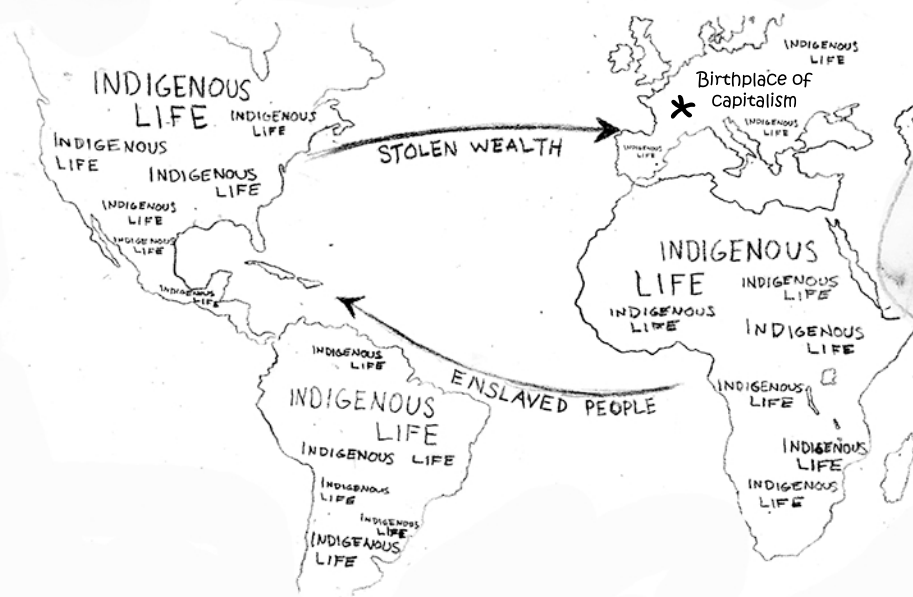 INDIGENOUS
LIFE
INDIGENOUS
LIFE
INDIGENOUS
LIFE
INDIGENOUS
LIFE
INDIGENOUS
LIFE
INDIGENOUS
LIFE
INDIGENOUS
LIFE
STOLEN WEALTH
INDIGENOUS
LIFE
Birthplace of
capitalism
INDIGENOUS
LIFE
INDIGENOUS
LIFE
ENSLAVED PEOPLE
INDIGENOUS
LIFE
INDIGENOUS
LIFE
INDIGENOUS LIFE
INDIGENOUS
LIFE
INDIGENOUS
LIFE
INDIGENOUS
LIFE
INDIGENOUS
LIFE
INDIGENOUS
LIFE
INDIGENOUS
LIFE
INDIGENOUS
LIFE
INDIGENOUS
LIFE
INDIGENOUS
LIFE
INDIGENOUS
LIFE